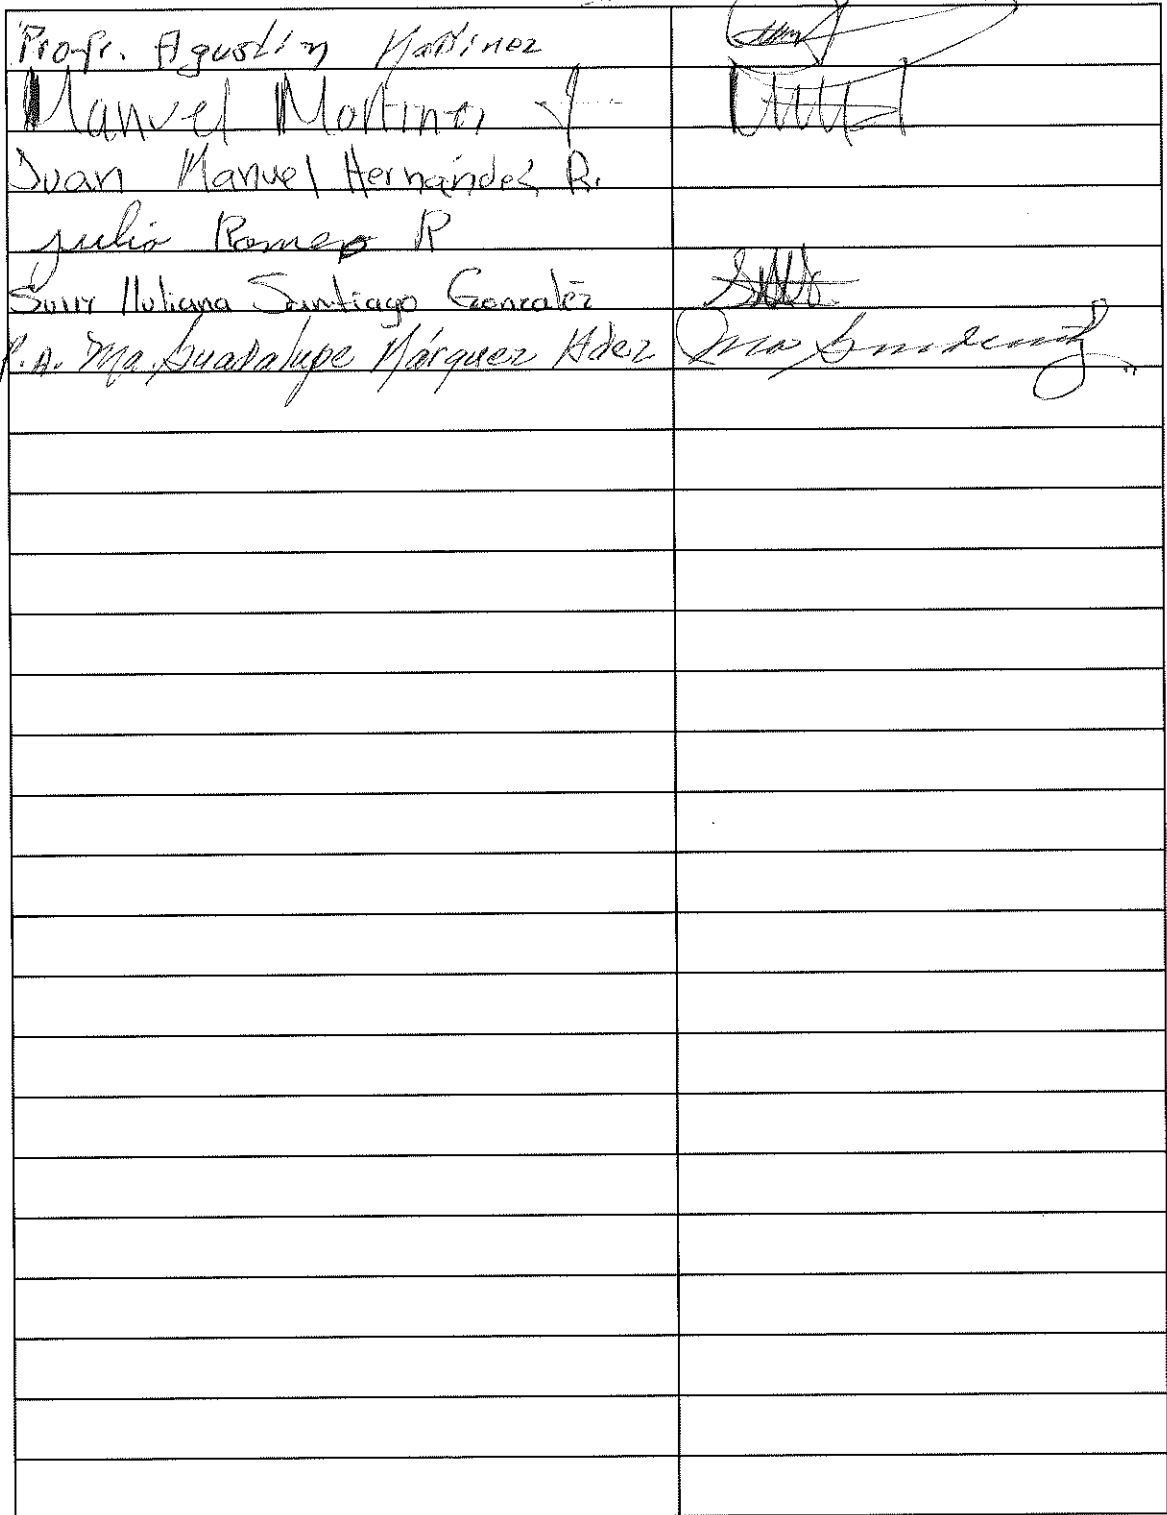 Profr. Agustín Martínez
Manuel Martinez J
Juan Manuel Hernández R.
Julio Romero R
Santiago González
P.A. Ma. Guadalupe Márquez Hdez